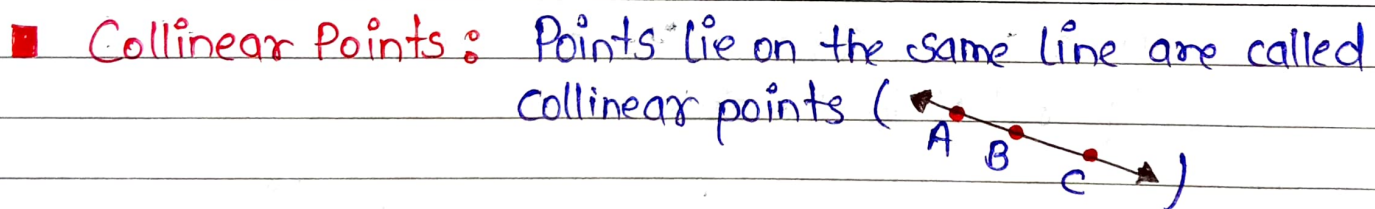 Collinear Points : Points lie on the same line are called
collinear points (
A B C )